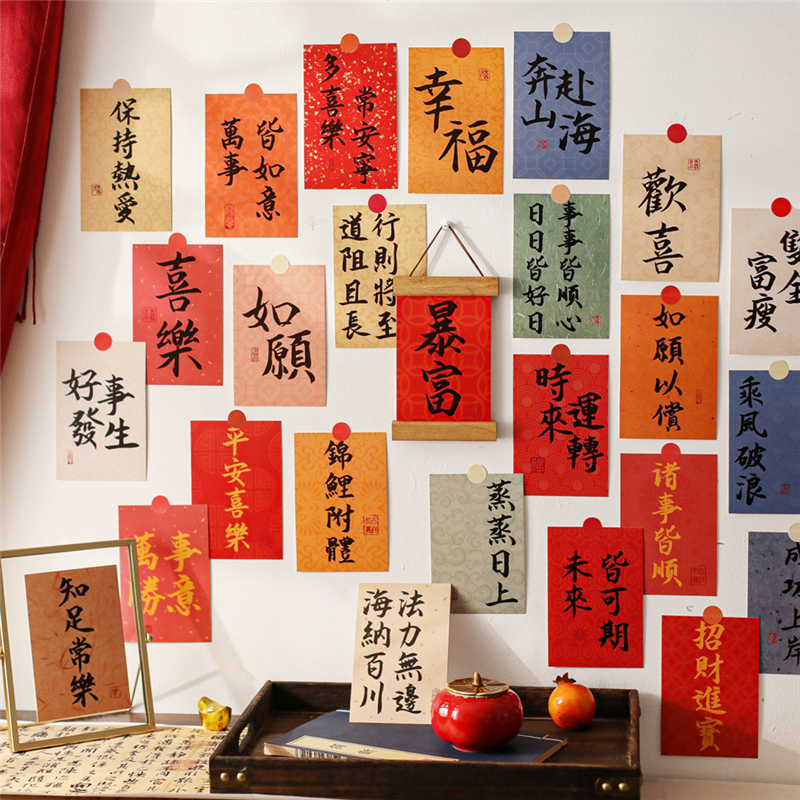 保持熱愛
萬事
皆如意
多喜樂
常安寧
幸福
奔山
赴海
歡喜
富瘦
雙全
喜樂
如願
道阻且長
行則將至
暴富
日日皆好日
事事皆順心
如願以償
乘風破浪
好事
發生
平安喜樂
錦鯉附體
時來
運轉
蒸蒸日上
諸事皆順
萬事
勝意
未來
皆可期
成功上岸
知足常樂
海納百川
法力無邊
招財進寶